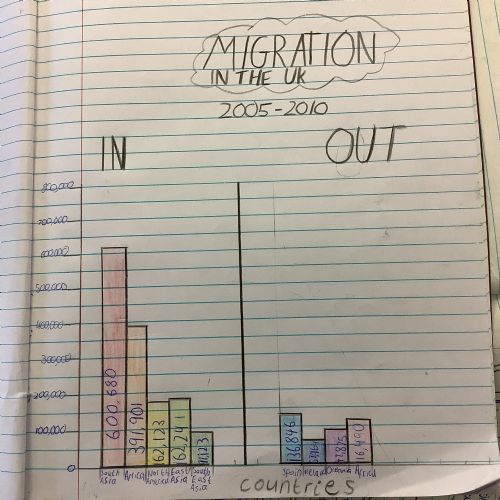 MIGRATION
IN THE UK
2005-2010
IN
OUT
800,000
700,000
600,000
500,000
400,000
300,000
200,000
100,000
0
600,680
391,901
South Asia
Africa
North America
East Asia
South East Asia
Spain
Ireland
Oceania
Africa
countries